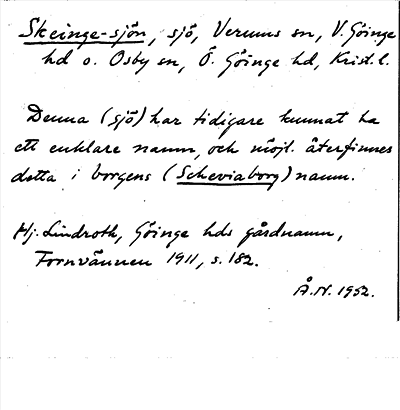 Skeinge-sjön, sjö, Verums sn, V. Göinge
hd o. Osby sn, Ö. Göinge hd, Krist. l.
Denna (sjö) har tidigare kunnat ha
ett enklare namn, och möjl. återfinnes
detta i borgens (Scheviaborg) namn.
Hj. Lindroth, Göinge hds gårdnamn,
Fornvännen 1911, s. 182.
Å.N. 1952.